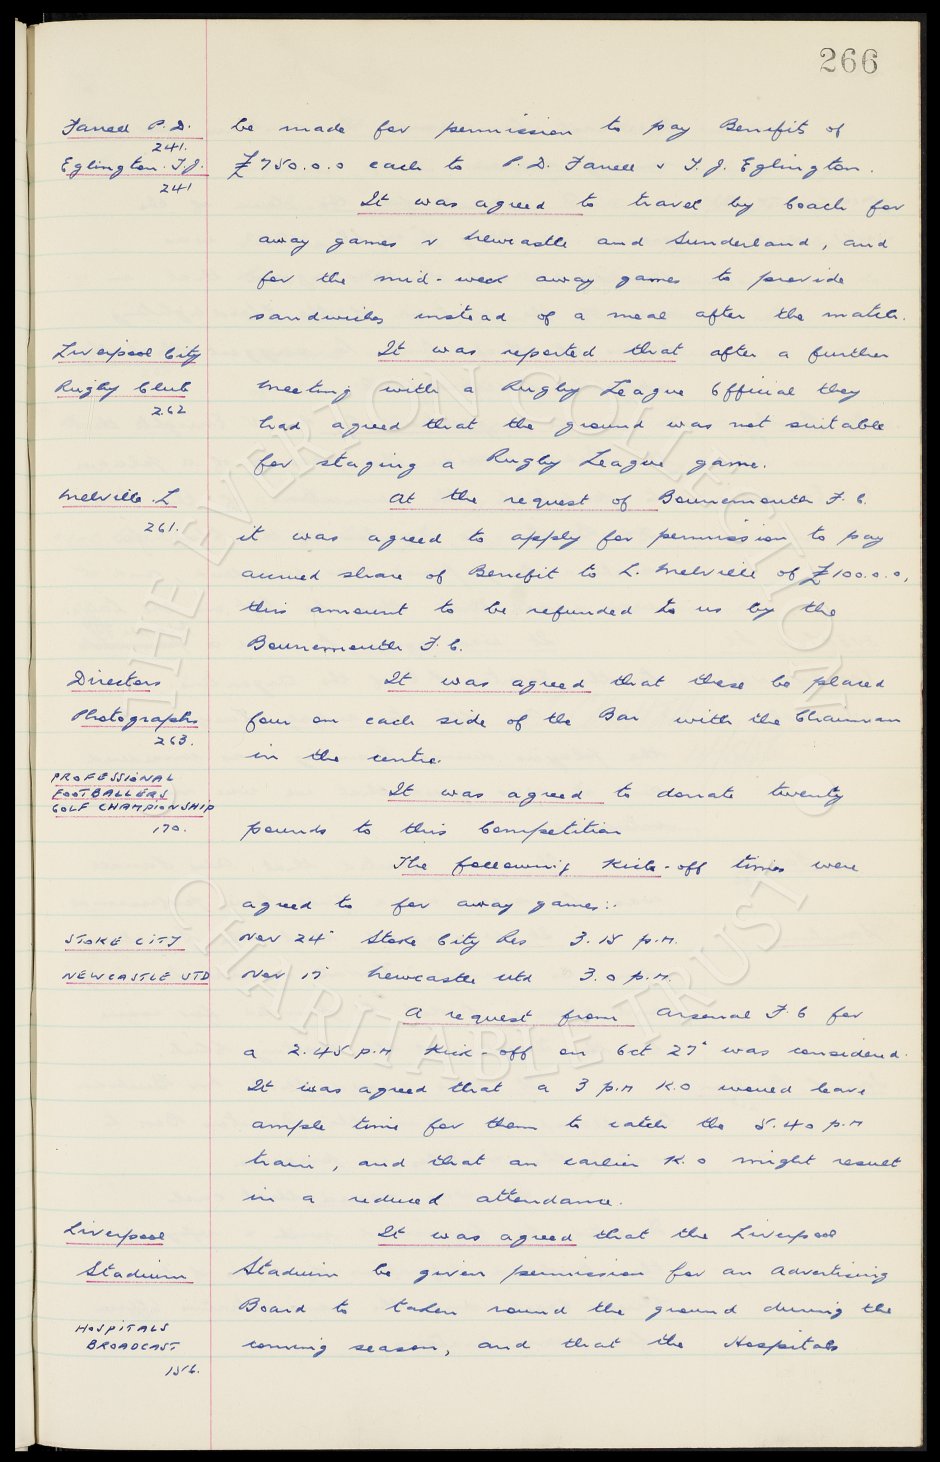 266
Farrell P.D.
241.
Eglington. T.J.
241
be made for permission to pay Benefits of
£750.0.0 each to P.D. Farrell & T.J. Eglington.
It was agreed to travel by Coach for
away games v Newcastle and Sunderland, and
for the mid-week away games to provide
sandwiches instead of a meal after the match.
Liverpool City
Rugby Club
262
It was reported that after a further
meeting with a Rugby League Official they
had agreed that the ground was not suitable
for staging a Rugby League game.
Melville. L
261.
At the request of Bournemouth F.C.
it was agreed to apply for permission to pay
accrued share of Benefit to L. Melville of £100.0.0,
this amount to be refunded to us by the
Bournemouth F.C.
Directors
Photographs
263.
It was agreed that these be placed
four on each side of the Bar with the Chairman
in the centre.
PROFESSIONAL
FOOTBALLERS
GOLF CHAMPIONSHIP
170.
It was agreed to donate twenty
pounds to this Competition
The following Kick-off times were
agreed to for away games:-
STOKE CITY
Nov 24" Stoke City Res 3.15 p.m.
NEWCASTLE UTD
Nov 17" Newcastle Utd 3.0 p.m.
A request from Arsenal F.C for
a 2.45 p.m Kick-off on Oct 27" was considered.
It was agreed that a 3 p.m K.O would leave
ample time for them to catch the 5.40 p.m
train, and that an earlier K.O might result
in a reduced attendance.
Liverpool
Stadium
It was agreed that the Liverpool
Stadium be given permission for an Advertising
Board to taken round the ground during the
HOSPITALS
BROADCAST
156.
coming season, and that the Hospitals
THE EVERTON COLLECTION
CHARITABLE TRUST